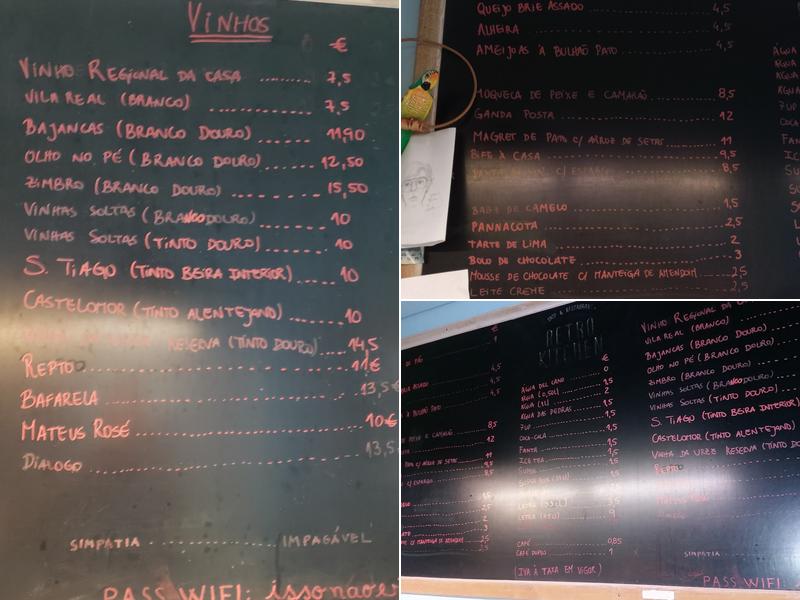 VINHOS
€
VINHO REGIONAL DA CASA ........ 7,5
VILA REAL (BRANCO) ........ 7,5
BAJANCAS (BRANCO DOURO) ...... 11,90
OLHO NO PÉ (BRANCO DOURO) ...... 12,50
ZIMBRO (BRANCO DOURO) ...... 15,50
VINHAS SOLTAS (BRANCO DOURO) ...... 10
VINHAS SOLTAS (TINTO DOURO) ...... 10
S. TIAGO (TINTO BEIRA INTERIOR) ..... 10
CASTELOMOR (TINTO ALENTEJANO) ..... 10
RESERVA (TINTO DOURO) .... 14,5
REPTO ........ 11€
BAFARELA ........ 13,5€
MATEUS ROSÉ ........ 10€
DIALOGO ........ 13,5
SIMPATIA ........ IMPAGÁVEL
PASS WIFI: isso não é
QUEIJO BRIE ASSADO ........ 4,5
ALHEIRA ........ 4,5
AMEIJOAS À BULHÃO PATO ........ 4,5
MOQUECA DE PEIXE E CAMARÃO ........ 8,5
GANDA POSTA ........ 12
MAGRET DE PATO C/ ARROZ DE SETAS ...... 11
BIFE À CASA ........ 9,5
8,5
BABA DE CAMELO ........ 1,5
PANNACOTA ........ 2,5
TARTE DE LIMA ........ 2
BOLO DE CHOCOLATE ........ 3
MOUSSE DE CHOCOLATE C/ MANTEIGA DE AMENDOIM ... 2,5
LEITE CREME ........ 2,5
RETRO
KITCHEN
€
ÁGUA DEL CANO ........ 0
ÁGUA (0,50L) ........ 1,5
ÁGUA (1L) ........ 2
ÁGUA DAS PEDRAS ........ 1,5
7UP ........ 1,5
COCA-COLA ........ 1,5
FANTA ........ 1,5
ICE TEA ........ 1,5
CAFÉ ........ 0,85
CAFÉ DUPLO ........ 1
(IVA À TAXA EM VIGOR)
VINHO REGIONAL DA C
VILA REAL (BRANCO)
BAJANCAS (BRANCO DOURO)
OLHO NO PÉ (BRANCO DOURO)
ZIMBRO (BRANCO DOURO)
VINHAS SOLTAS (BRANCO DOURO)
VINHAS SOLTAS (TINTO DOURO)
S. TIAGO (TINTO BEIRA INTERIOR)
CASTELOMOR (TINTO ALENTEJANO)
VINHA DA URZE RESERVA (TINTO DO
REPTO
SIMPATIA
PASS WIFI: